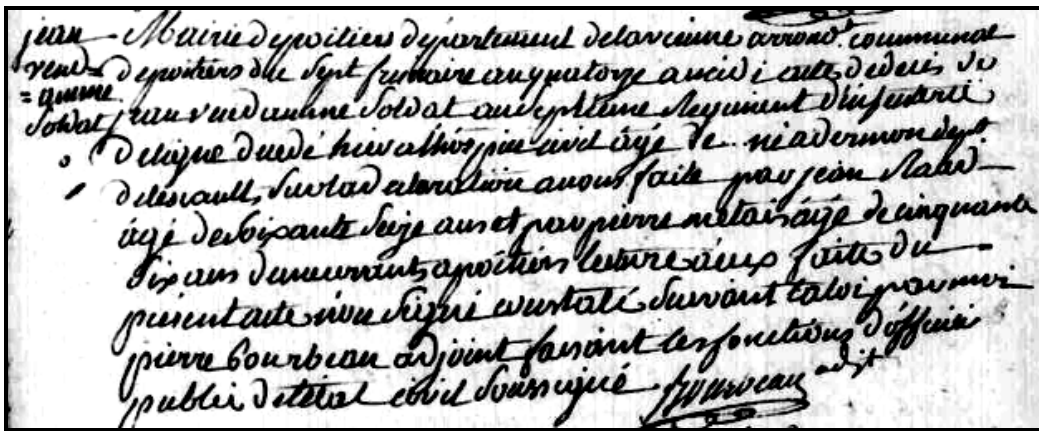 jean Mairie de poitiers département de la vienne arrondt. communal
vend= de poitiers du sept frimaire an quatorze a midi acte de decès de
= anme jean vendanme soldat au septieme Regiment d'infanterie
soldat de ligne decedé hier a l'hospice civil âgé de né a dept
de lerault, sur la declaration a nous faite par jean
âgé de soixante seize ans et par pierre metais âgé de cinquante
six ans demeurants a poitiers lecture a eux faite du
présent acte nòn signé constaté suivant la loi par moi
pierre Bourbeau adjoint faisant les fonctions d'officier
public de l'état civil soussigné Bourbeau adjt